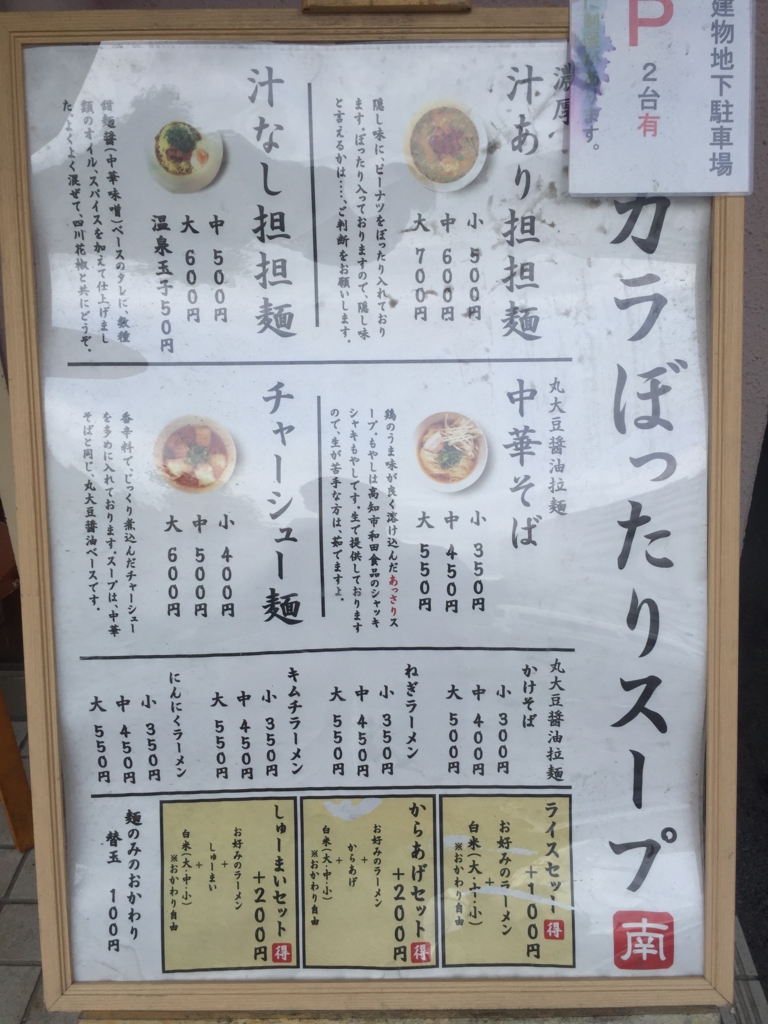 建物地下駐車場
P
2台有
ります。
カラぼったりスープ
南
濃厚
汁あり担担麺
小 500円
中 600円
大 700円
隠し味に、ピーナツをぼったり入れており
ます。ぼったり入っておりますので、隠し味
と言えるかは……、ご判断をお願いします。
汁なし担担麺
中 500円
大 600円
温泉玉子50円
甜麺醤(中華味噌)ベースのタレに、数種
類のオイル、スパイスを加えて仕上げまし
た。よくよく混ぜて、四川花椒と共にどうぞ。
丸大豆醤油拉麺
中華そば
小 350円
中 450円
大 550円
鶏のうま味が良く溶け込んだあっさりス
ープ。もやしは高知市和田食品のシャッキ
シャキもやしです。生で提供しております
ので、生が苦手な方は、茹でますよ。
チャーシュー麺
小 400円
中 500円
大 600円
香辛料で、じっくり煮込んだチャーシュー
を多めに入れております。スープは、中華
そばと同じ、丸大豆醤油ベースです。
丸大豆醤油拉麺
かけそば
小 300円
中 400円
大 500円
ねぎラーメン
小 350円
中 450円
大 550円
キムチラーメン
小 350円
中 450円
大 550円
にんにくラーメン
小 350円
中 450円
大 550円
ライスセット
+100円 得
お好みのラーメン
+
白米(大・中・小)
※おかわり自由
からあげセット
+200円 得
お好みのラーメン
+
からあげ
+
白米(大・中・小)
※おかわり自由
しゅーまいセット
+200円 得
お好みのラーメン
+
しゅーまい
+
白米(大・中・小)
※おかわり自由
麺のみのおかわり
替玉 100円